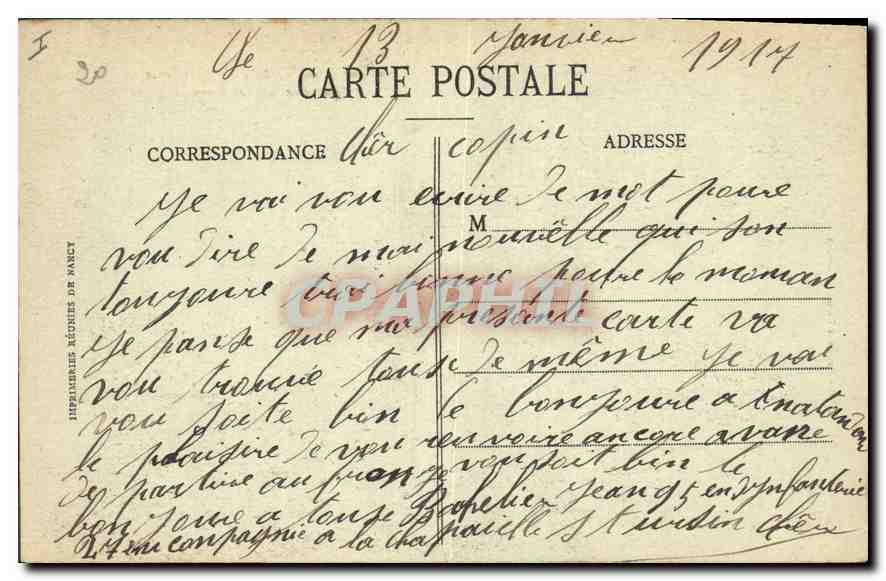 I
20
Le 13 Janvier 1917
CARTE POSTALE
CORRESPONDANCE
ADRESSE
Chèr copin
Je vai vou ecrire de mot poure
M
vou dire de mai nouvèlle qui son
toujoure trai bonne poure le moman
je panse que ma présante carte va
vou trouvé touse de même je vai
vou soite bin le bonjoure a
le plaisire de vou renvoire ancore avare
de partire au fron je vou soit bin le
bon joure a touse Jean 95 en dynfanterie
27 em conpagnie a la chapaielle St ursin chèr
IMPRIMERIES RÉUNIES DE NANCY
CPAPHIL